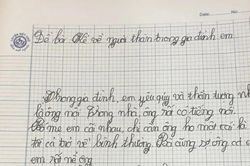 Đề bài: Kể về người thân trong gia đình em
Trong gia đình, em yêu quý và thần tượng nhất
là ông nội. Trong nhà, ông rất có tiếng nói.
Bố mẹ em cãi nhau, chỉ cần ông ho một cái là
tất cả trở về bình thường. Bà cũng sợ ông cả
em rất nể ông